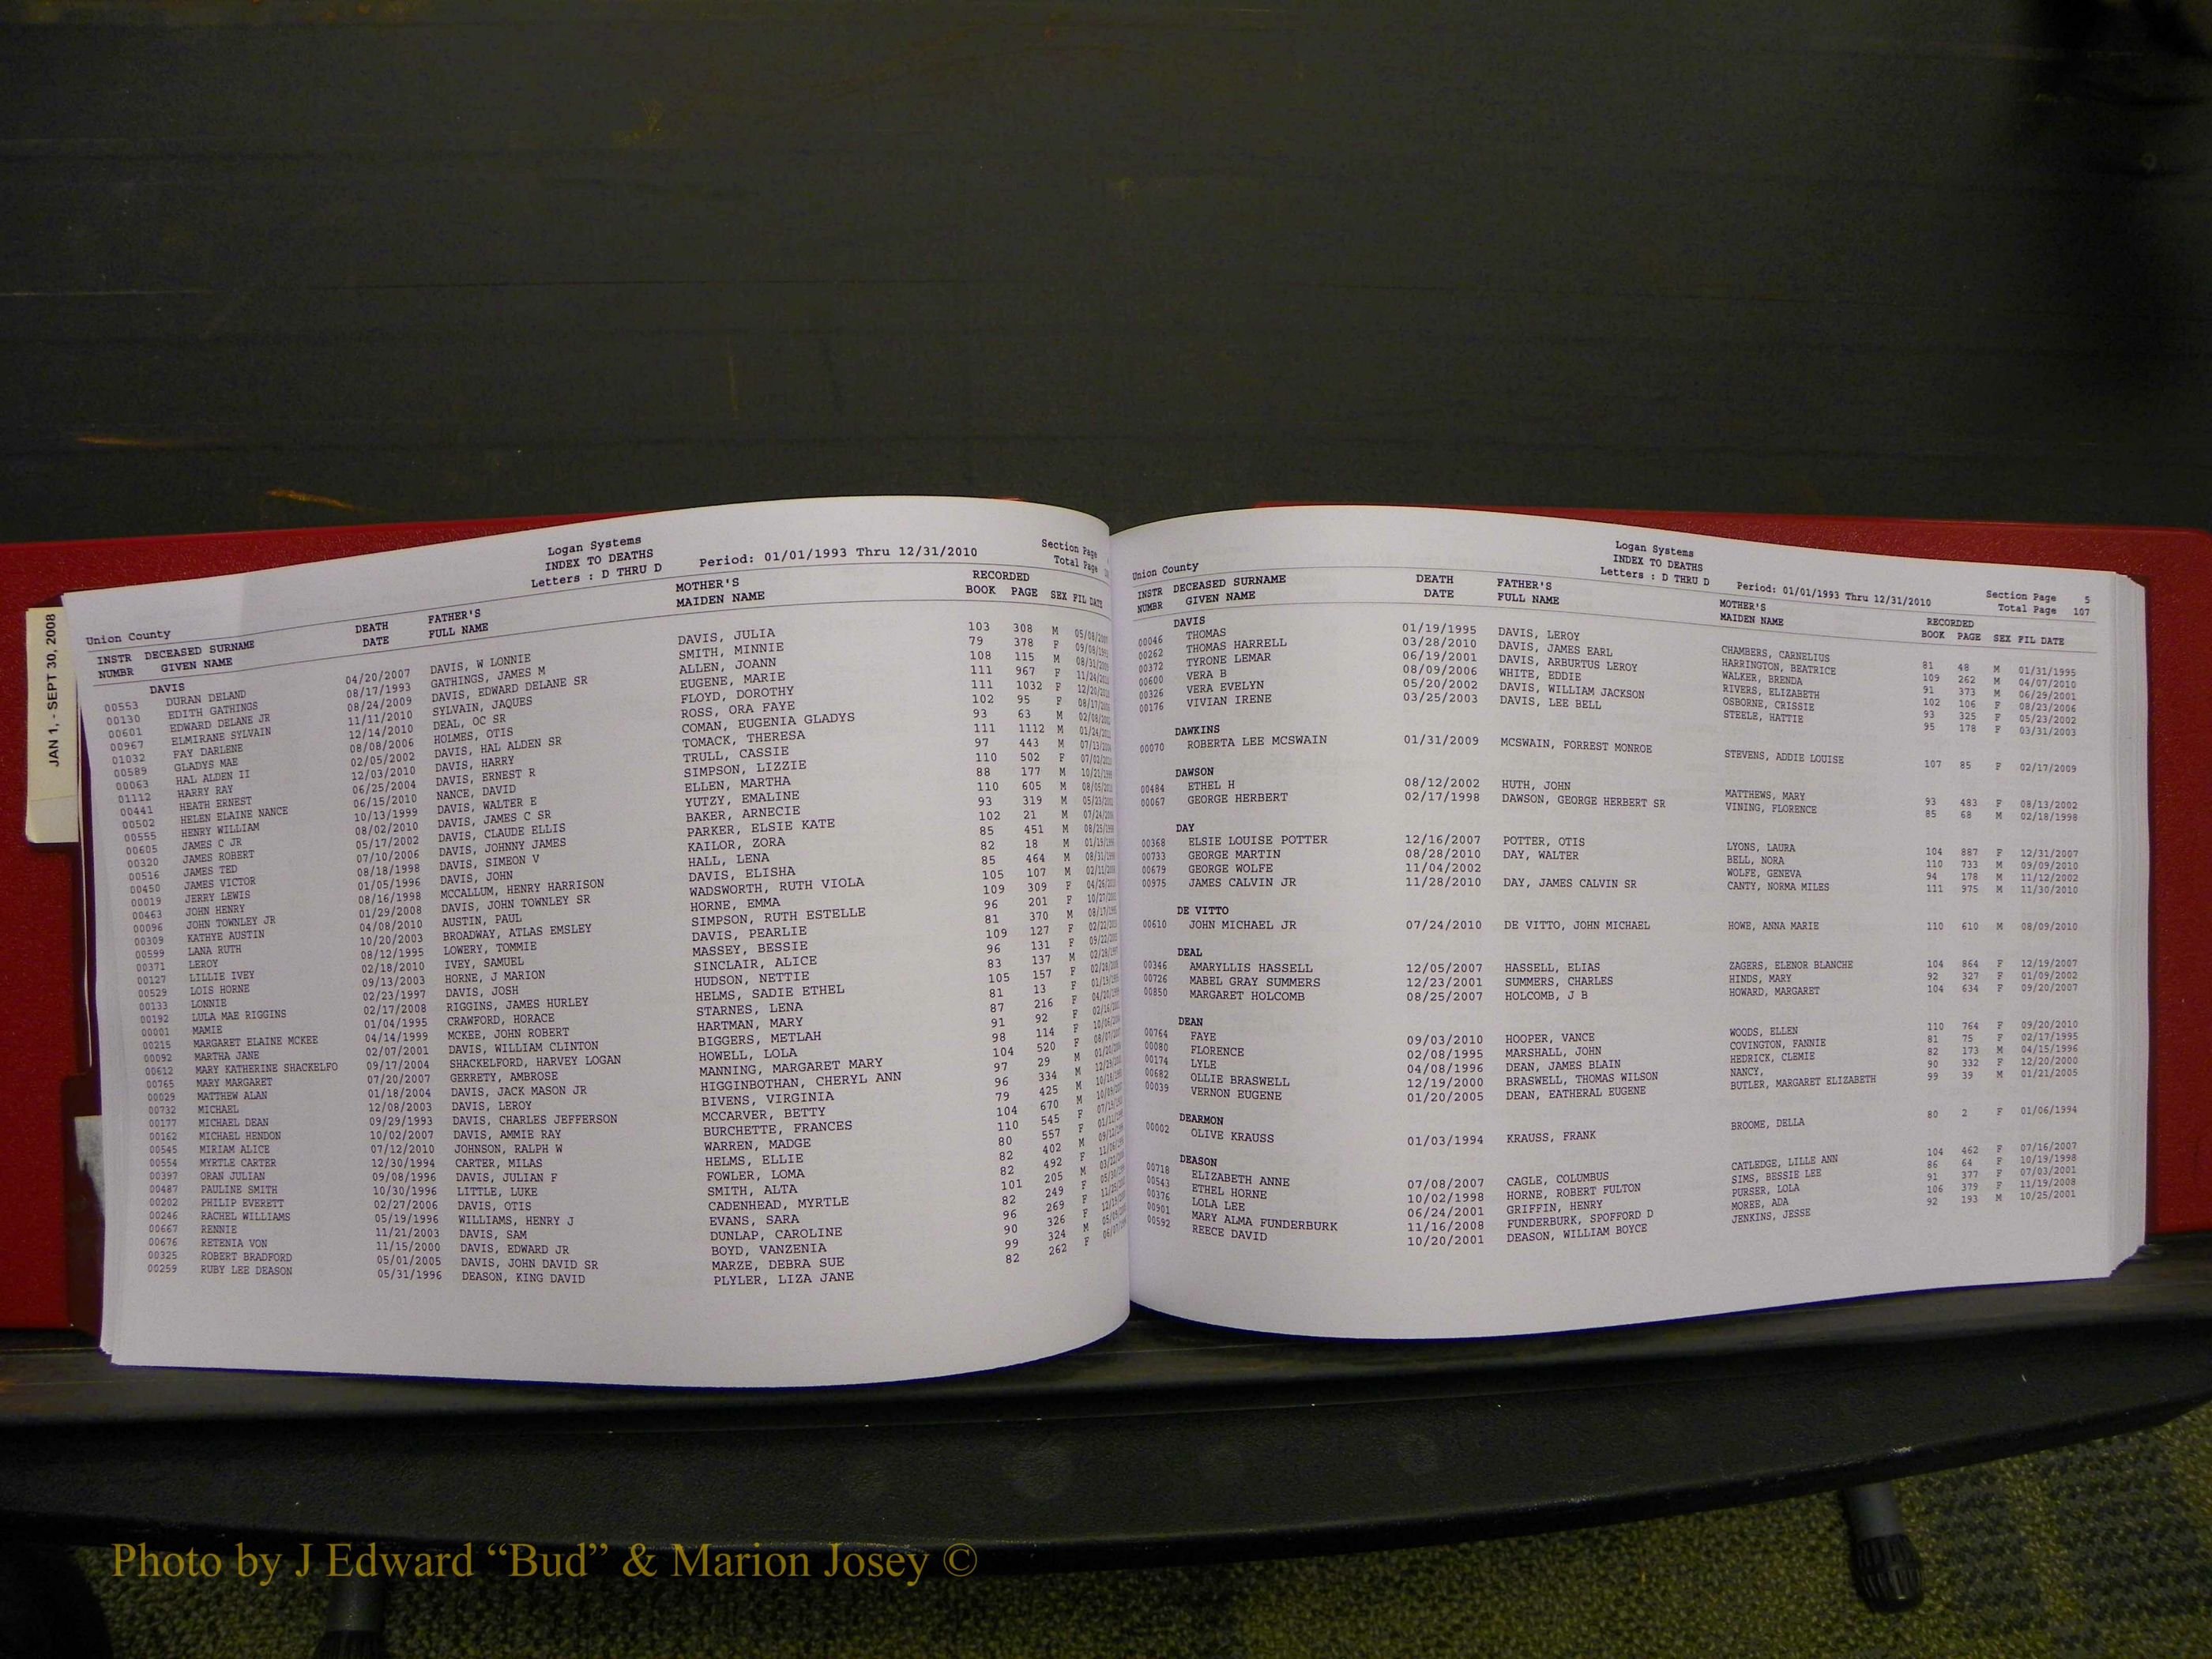 JAN 1, - SEPT 30, 2008
Logan Systems
INDEX TO DEATHS
Letters : D THRU D Period: 01/01/1993 Thru 12/31/2010
Section Page
Total Page
Union County
INSTR DECEASED SURNAME DEATH FATHER'S MOTHER'S RECORDED
NUMBR GIVEN NAME DATE FULL NAME MAIDEN NAME BOOK PAGE SEX FIL DATE
DAVIS
00553 DURAN DELAND 04/20/2007 DAVIS, W LONNIE DAVIS, JULIA 103 308 M
00130 EDITH GATHINGS 08/17/1993 GATHINGS, JAMES M SMITH, MINNIE 79 378 F
00601 EDWARD DELANE JR 08/24/2009 DAVIS, EDWARD DELANE SR ALLEN, JOANN 108 115 M
00967 ELMIRANE SYLVAIN 11/11/2010 SYLVAIN, JAQUES EUGENE, MARIE 111 967 F
01032 FAY DARLENE 12/14/2010 DEAL, OC SR FLOYD, DOROTHY 111 1032 F
00589 GLADYS MAE 08/08/2006 HOLMES, OTIS ROSS, ORA FAYE 102 95 F
00063 HAL ALDEN II 02/05/2002 DAVIS, HAL ALDEN SR COMAN, EUGENIA GLADYS 93 63 M
01112 HARRY RAY 12/03/2010 DAVIS, HARRY TOMACK, THERESA 111 1112 M
00441 HEATH ERNEST 06/25/2004 DAVIS, ERNEST R TRULL, CASSIE 97 443 M
00502 HELEN ELAINE NANCE 06/15/2010 NANCE, DAVID SIMPSON, LIZZIE 110 502 F
00555 HENRY WILLIAM 10/13/1999 DAVIS, WALTER E ELLEN, MARTHA 88 177 M
00605 JAMES C JR 08/02/2010 DAVIS, JAMES C SR YUTZY, EMALINE 110 605 M
00320 JAMES ROBERT 05/17/2002 DAVIS, CLAUDE ELLIS BAKER, ARNECIE 93 319 M
00516 JAMES TED 07/10/2006 DAVIS, JOHNNY JAMES PARKER, ELSIE KATE 102 21 M
00450 JAMES VICTOR 08/18/1998 DAVIS, SIMEON V KAILOR, ZORA 85 451 M
00019 JERRY LEWIS 01/05/1996 DAVIS, JOHN HALL, LENA 82 18 M
00463 JOHN HENRY 08/16/1998 MCCALLUM, HENRY HARRISON DAVIS, ELISHA 85 464 M
00096 JOHN TOWNLEY JR 01/29/2008 DAVIS, JOHN TOWNLEY SR WADSWORTH, RUTH VIOLA 105 107 M
00309 KATHYE AUSTIN 04/08/2010 AUSTIN, PAUL HORNE, EMMA 109 309 F
00599 LANA RUTH 10/20/2003 BROADWAY, ATLAS EMSLEY SIMPSON, RUTH ESTELLE 96 201 F
00371 LEROY 08/12/1995 LOWERY, TOMMIE DAVIS, PEARLIE 81 370 M
00127 LILLIE IVEY 02/18/2010 IVEY, SAMUEL MASSEY, BESSIE 109 127 F
00529 LOIS HORNE 09/13/2003 HORNE, J MARION SINCLAIR, ALICE 96 131 F
00133 LONNIE 02/23/1997 DAVIS, JOSH HUDSON, NETTIE 83 137 M
00192 LULA MAE RIGGINS 02/17/2008 RIGGINS, JAMES HURLEY HELMS, SADIE ETHEL 105 157 F
00001 MAMIE 01/04/1995 CRAWFORD, HORACE STARNES, LENA 81 13 F
00215 MARGARET ELAINE MCKEE 04/14/1999 MCKEE, JOHN ROBERT HARTMAN, MARY 87 216 F
00092 MARTHA JANE 02/07/2001 DAVIS, WILLIAM CLINTON BIGGERS, METLAH 91 92 F
00612 MARY KATHERINE SHACKELFO 09/17/2004 SHACKELFORD, HARVEY LOGAN HOWELL, LOLA 98 114 F
00765 MARY MARGARET 07/20/2007 GERRETY, AMBROSE MANNING, MARGARET MARY 104 520 F
00029 MATTHEW ALAN 01/18/2004 DAVIS, JACK MASON JR HIGGINBOTHAN, CHERYL ANN 97 29 M
00732 MICHAEL 12/08/2003 DAVIS, LEROY BIVENS, VIRGINIA 96 334 M
00177 MICHAEL DEAN 09/29/1993 DAVIS, CHARLES JEFFERSON MCCARVER, BETTY 79 425 M
00162 MICHAEL HENDON 10/02/2007 DAVIS, AMMIE RAY BURCHETTE, FRANCES 104 670 M
00545 MIRIAM ALICE 07/12/2010 JOHNSON, RALPH W WARREN, MADGE 110 545 F
00554 MYRTLE CARTER 12/30/1994 CARTER, MILAS HELMS, ELLIE 80 557 F
00397 ORAN JULIAN 09/08/1996 DAVIS, JULIAN F FOWLER, LOMA 82 402 M
00487 PAULINE SMITH 10/30/1996 LITTLE, LUKE SMITH, ALTA 82 492 F
00202 PHILIP EVERETT 02/27/2006 DAVIS, OTIS CADENHEAD, MYRTLE 101 205 M
00246 RACHEL WILLIAMS 05/19/1996 WILLIAMS, HENRY J EVANS, SARA 82 249 F
00667 RENNIE 11/21/2003 DAVIS, SAM DUNLAP, CAROLINE 96 269 F
00676 RETENIA VON 11/15/2000 DAVIS, EDWARD JR BOYD, VANZENIA 90 326 F
00325 ROBERT BRADFORD 05/01/2005 DAVIS, JOHN DAVID SR MARZE, DEBRA SUE 99 324 M
00259 RUBY LEE DEASON 05/31/1996 DEASON, KING DAVID PLYLER, LIZA JANE 82 262 F
Logan Systems
INDEX TO DEATHS
Letters : D THRU D Period: 01/01/1993 Thru 12/31/2010
Section Page 5
Total Page 107
Union County
INSTR DECEASED SURNAME DEATH FATHER'S MOTHER'S RECORDED
NUMBR GIVEN NAME DATE FULL NAME MAIDEN NAME BOOK PAGE SEX FIL DATE
DAVIS
00046 THOMAS 01/19/1995 DAVIS, LEROY CHAMBERS, CARNELIUS 81 48 M 01/31/1995
00262 THOMAS HARRELL 03/28/2010 DAVIS, JAMES EARL HARRINGTON, BEATRICE 109 262 M 04/07/2010
00372 TYRONE LEMAR 06/19/2001 DAVIS, ARBURTUS LEROY WALKER, BRENDA 91 373 M 06/29/2001
00600 VERA B 08/09/2006 WHITE, EDDIE RIVERS, ELIZABETH 102 106 F 08/23/2006
00326 VERA EVELYN 05/20/2002 DAVIS, WILLIAM JACKSON OSBORNE, CRISSIE 93 325 F 05/23/2002
00176 VIVIAN IRENE 03/25/2003 DAVIS, LEE BELL STEELE, HATTIE 95 178 F 03/31/2003
DAWKINS
00070 ROBERTA LEE MCSWAIN 01/31/2009 MCSWAIN, FORREST MONROE STEVENS, ADDIE LOUISE 107 85 F 02/17/2009
DAWSON
00484 ETHEL H 08/12/2002 HUTH, JOHN MATTHEWS, MARY 93 483 F 08/13/2002
00067 GEORGE HERBERT 02/17/1998 DAWSON, GEORGE HERBERT SR VINING, FLORENCE 85 68 M 02/18/1998
DAY
00368 ELSIE LOUISE POTTER 12/16/2007 POTTER, OTIS LYONS, LAURA 104 887 F 12/31/2007
00733 GEORGE MARTIN 08/28/2010 DAY, WALTER BELL, NORA 110 733 M 09/09/2010
00679 GEORGE WOLFE 11/04/2002 WOLFE, GENEVA 94 178 M 11/12/2002
00975 JAMES CALVIN JR 11/28/2010 DAY, JAMES CALVIN SR CANTY, NORMA MILES 111 975 M 11/30/2010
DE VITTO
00610 JOHN MICHAEL JR 07/24/2010 DE VITTO, JOHN MICHAEL HOWE, ANNA MARIE 110 610 M 08/09/2010
DEAL
00346 AMARYLLIS HASSELL 12/05/2007 HASSELL, ELIAS ZAGERS, ELENOR BLANCHE 104 864 F 12/19/2007
00726 MABEL GRAY SUMMERS 12/23/2001 SUMMERS, CHARLES HINDS, MARY 92 327 F 01/09/2002
00850 MARGARET HOLCOMB 08/25/2007 HOLCOMB, J B HOWARD, MARGARET 104 634 F 09/20/2007
DEAN
00764 FAYE 09/03/2010 HOOPER, VANCE WOODS, ELLEN 110 764 F 09/20/2010
00080 FLORENCE 02/08/1995 MARSHALL, JOHN COVINGTON, FANNIE 81 75 F 02/17/1995
00174 LYLE 04/08/1996 DEAN, JAMES BLAIN HEDRICK, CLEMIE 82 173 M 04/15/1996
00682 OLLIE BRASWELL 12/19/2000 BRASWELL, THOMAS WILSON NANCY, 90 332 F 12/20/2000
00039 VERNON EUGENE 01/20/2005 DEAN, EATHERAL EUGENE BUTLER, MARGARET ELIZABETH 99 39 M 01/21/2005
DEARMON
00002 OLIVE KRAUSS 01/03/1994 KRAUSS, FRANK BROOME, DELLA 80 2 F 01/06/1994
DEASON
00718 ELIZABETH ANNE 07/08/2007 CAGLE, COLUMBUS CATLEDGE, LILLE ANN 104 462 F 07/16/2007
00543 ETHEL HORNE 10/02/1998 HORNE, ROBERT FULTON SIMS, BESSIE LEE 86 64 F 10/19/1998
00376 LOLA LEE 06/24/2001 GRIFFIN, HENRY PURSER, LOLA 91 377 F 07/03/2001
00901 MARY ALMA FUNDERBURK 11/16/2008 FUNDERBURK, SPOFFORD D MOREE, ADA 106 379 F 11/19/2008
00592 REECE DAVID 10/20/2001 DEASON, WILLIAM BOYCE JENKINS, JESSE 92 193 M 10/25/2001
Photo by J Edward “Bud” & Marion Josey ©